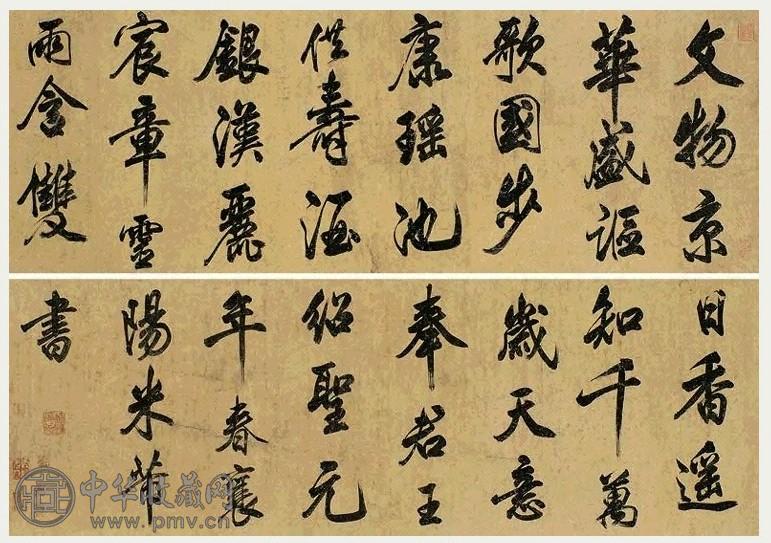 文物京
華盛謳
歌國步
康瑶池
供壽酒
銀漢麗
宸章靈
雨含雙
日香遥
知千萬
歲天意
奉君王
紹聖元
年春襄
陽米芾
書
中华收藏网
www.pmv.cn